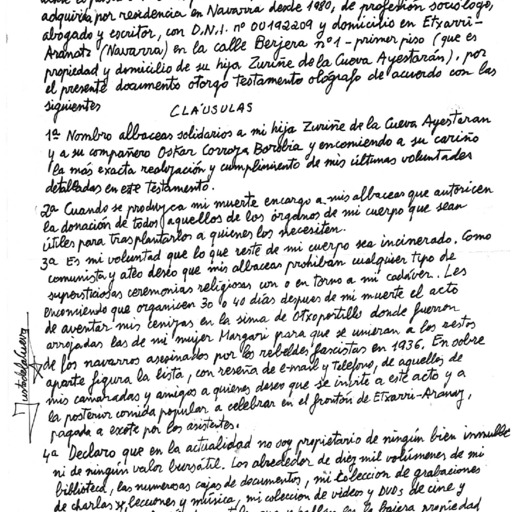 adquirida por residencia en Navarra desde 1980, de profesión sociólogo,
abogado y escritor, con D.N.I. nº 00142209 y domicilio en Etxarri-
Aranatz (Navarra) en la calle Berjera nº1 - primer piso (que es
propiedad y domicilio de su hija Zuriñe de la Cueva Ayestarán), por
el presente documento otorgo testamento ológrafo de acuerdo con las
siguientes
CLÁUSULAS
1ª Nombro albaceas solidarios a mi hija Zuriñe de la Cueva Ayestaran
y a su compañero Oskar Corroza Berobia y encomiendo a su cariño
la más exacta realización y cumplimiento de mis últimas voluntades
detalladas en este testamento.
2ª Cuando se produzca mi muerte encargo a mis albaceas que autoricen
la donación de todos aquellos de los órganos de mi cuerpo que sean
útiles para trasplantarlos a quienes los necesiten.
3ª Es mi voluntad que lo que reste de mi cuerpo sea incinerado. Como
comunista y ateo deseo que mis albaceas prohiban cualquier tipo de
supersticiosas ceremonias religiosas con o en torno a mi cadáver. Les
encomiendo que organicen 30 o 40 días despues de mi muerte el acto
de aventar mis cenizas en la sima de Otxoportillo donde fueron
arrojadas las de mi mujer Margari para que se unieran a los restos
de los navarros asesinados por los rebeldes fascistas en 1936. En sobre
aparte figura la lista, con reseña de e-mail y teléfono, de aquellos de
mis camaradas y amigos a quienes deseo que se invite a este acto y a
la posterior comida popular a celebrar en el frontón de Etxarri-Aranaz,
pagada a escote por los asistentes.
4ª Declaro que en la actualidad no soy propietario de ningún bien inmueble
ni de ningún valor bursátil. Los alrededor de diez mil volúmenes de mi
biblioteca, las numerosas cajas de documentos, mi colección de grabaciones
de charlas, lecciones y música, mi colección de videos y DVDs de cine y
Justo de la Cueva